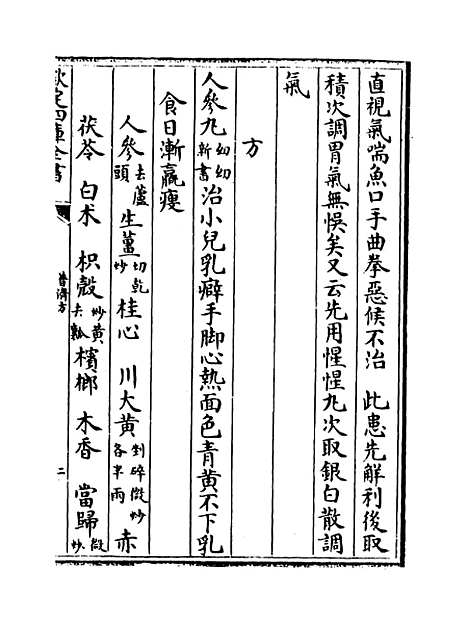 直視氣喘魚口手曲拳惡候不治 此患先解利後取
積次調胃氣無悞矣又云先用惺惺丸次取銀白散調
氣
方
人參丸幼幼新書治小兒乳癖手脚心熱面色青黄不下乳
食日漸羸瘦
人參去蘆頭 生薑切乾炒 桂心 川大黄剉碎微炒各半兩 赤
茯苓 白术 枳殼炒黄去瓤 檳榔 木香 當歸微炒
欽定四庫全書
普濟方
二